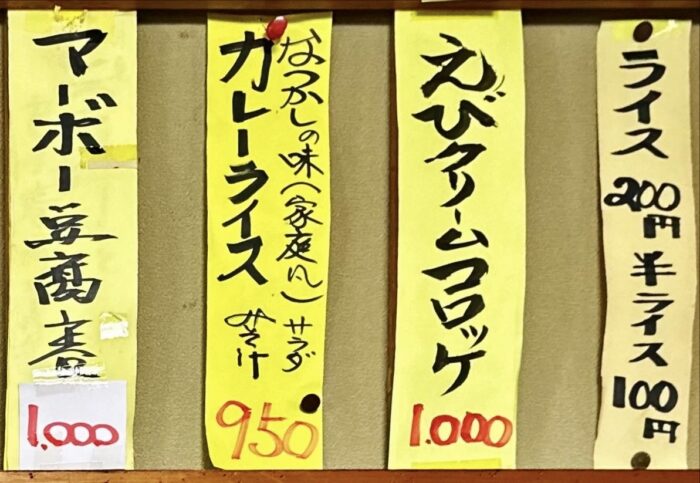 ライス 200円 半ライス 100円
えびクリームコロッケ
1.000
なつかしの味(家庭風)
カレーライス
サラダ
みそ汁
950
マーボー豆腐
1.000